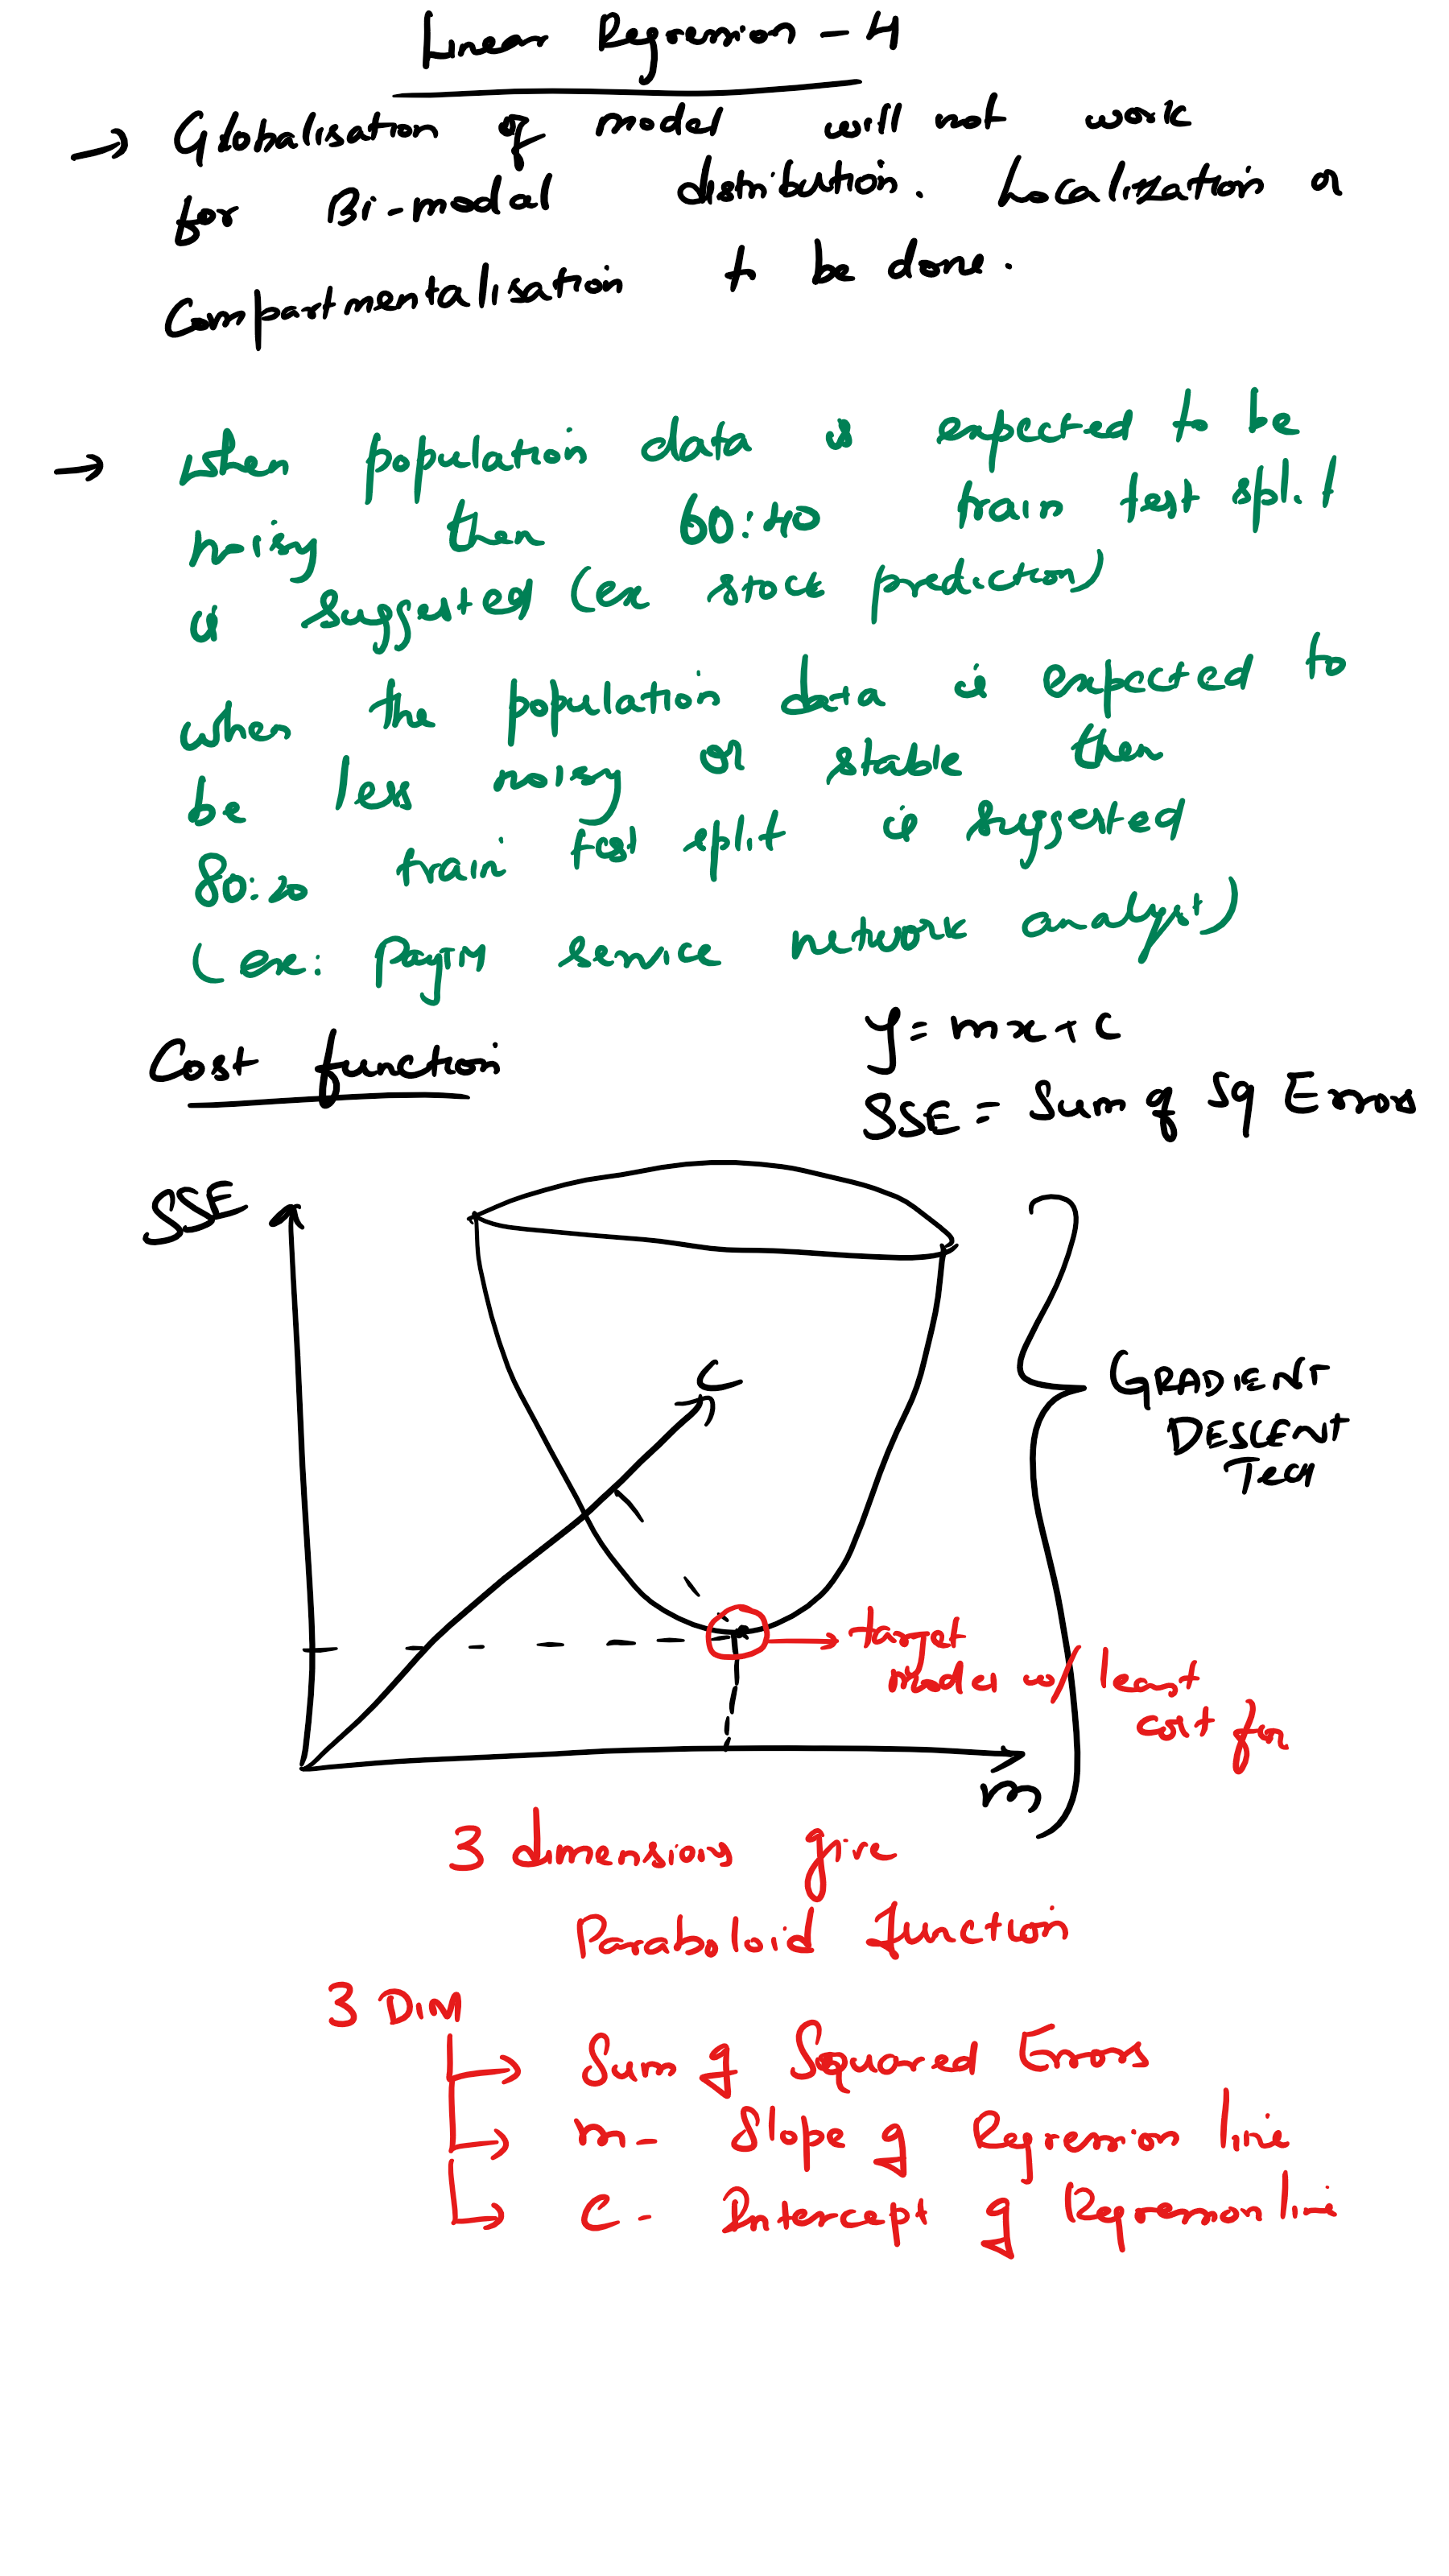 Linear Regression - 4
→ Globalisation of model will not work
for Bi-modal distribution. Localization or
Compartmentalisation to be done.
→ when population data is expected to be
noisy then 60:40 train test split
is suggested (ex stock prediction)
when the population data is expected to
be less noisy or stable then
80:20 train test split is suggested
(ex: PayTM service network analyst)
y = mx + c
Cost function
SSE = Sum of Sq Errors
SSE
C
GRADIENT
DESCENT
TECH
target
model w/ least
cost fn
m
3 dimensions give
Paraboloid function
3 DIM
→ Sum of Squared Errors
→ m - Slope of Regression line
→ C - Intercept of Regression line